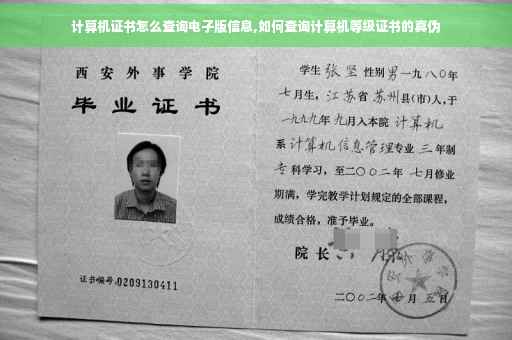 计算机证书怎么查询电子版信息,如何查询计算机等级证书的真伪
西安外事学院
毕业证书
证书编号:0209130411
学生 张坚 性别 男 一九八〇年
七月生, 江苏省 苏州县(市)人,于
一九九九年 九月入本院 计算机
系 计算机信息管理专业 三 年制
专 科学习, 至二〇〇二年 七月修业
期满, 学完教学计划规定的全部课程,
成绩合格, 准予毕业。
院长
二〇〇二年 月 五日